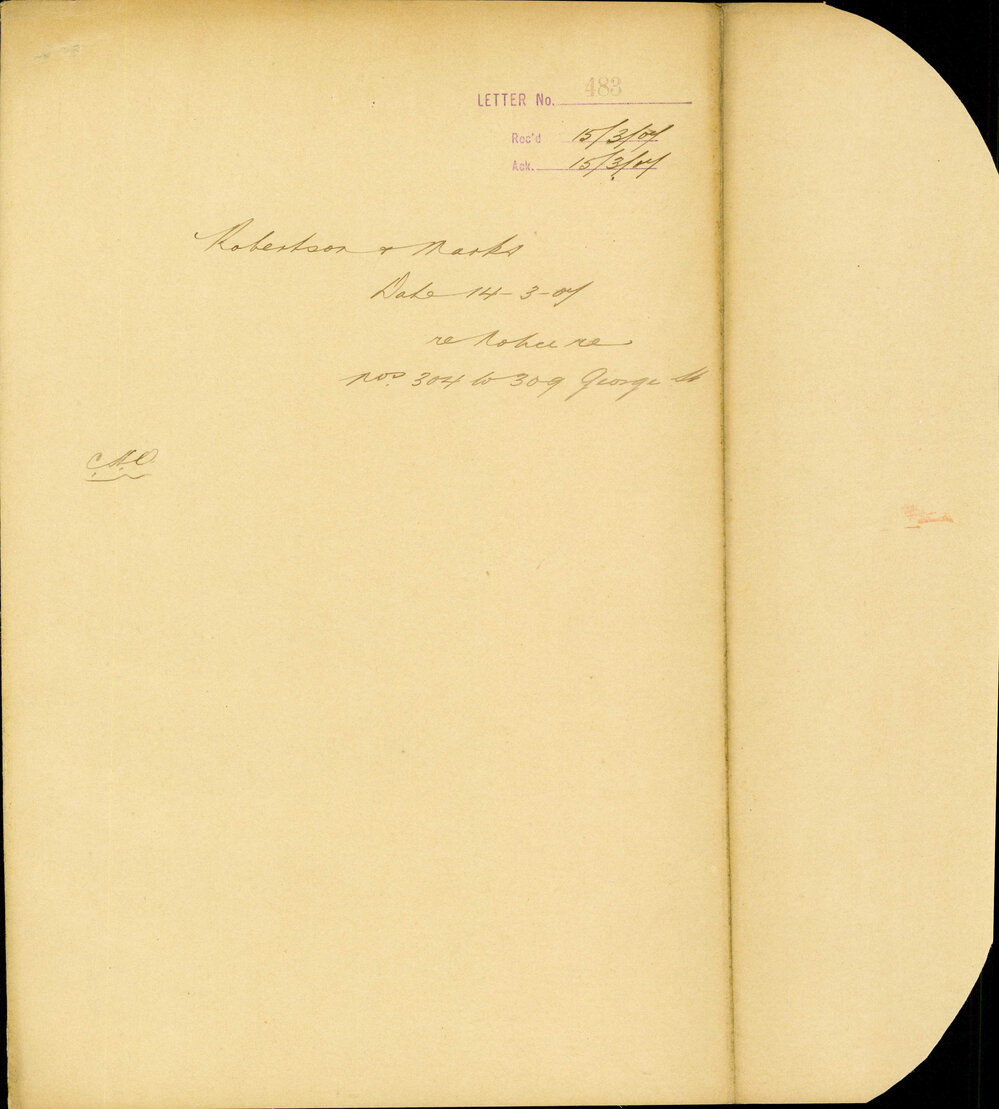 LETTER No. 483
Rec'd 15/3/07
Ack. 15/3/07
Robertson & Marks
Date 14-3-07
re Notice re
Nos. 304 to 309 George St